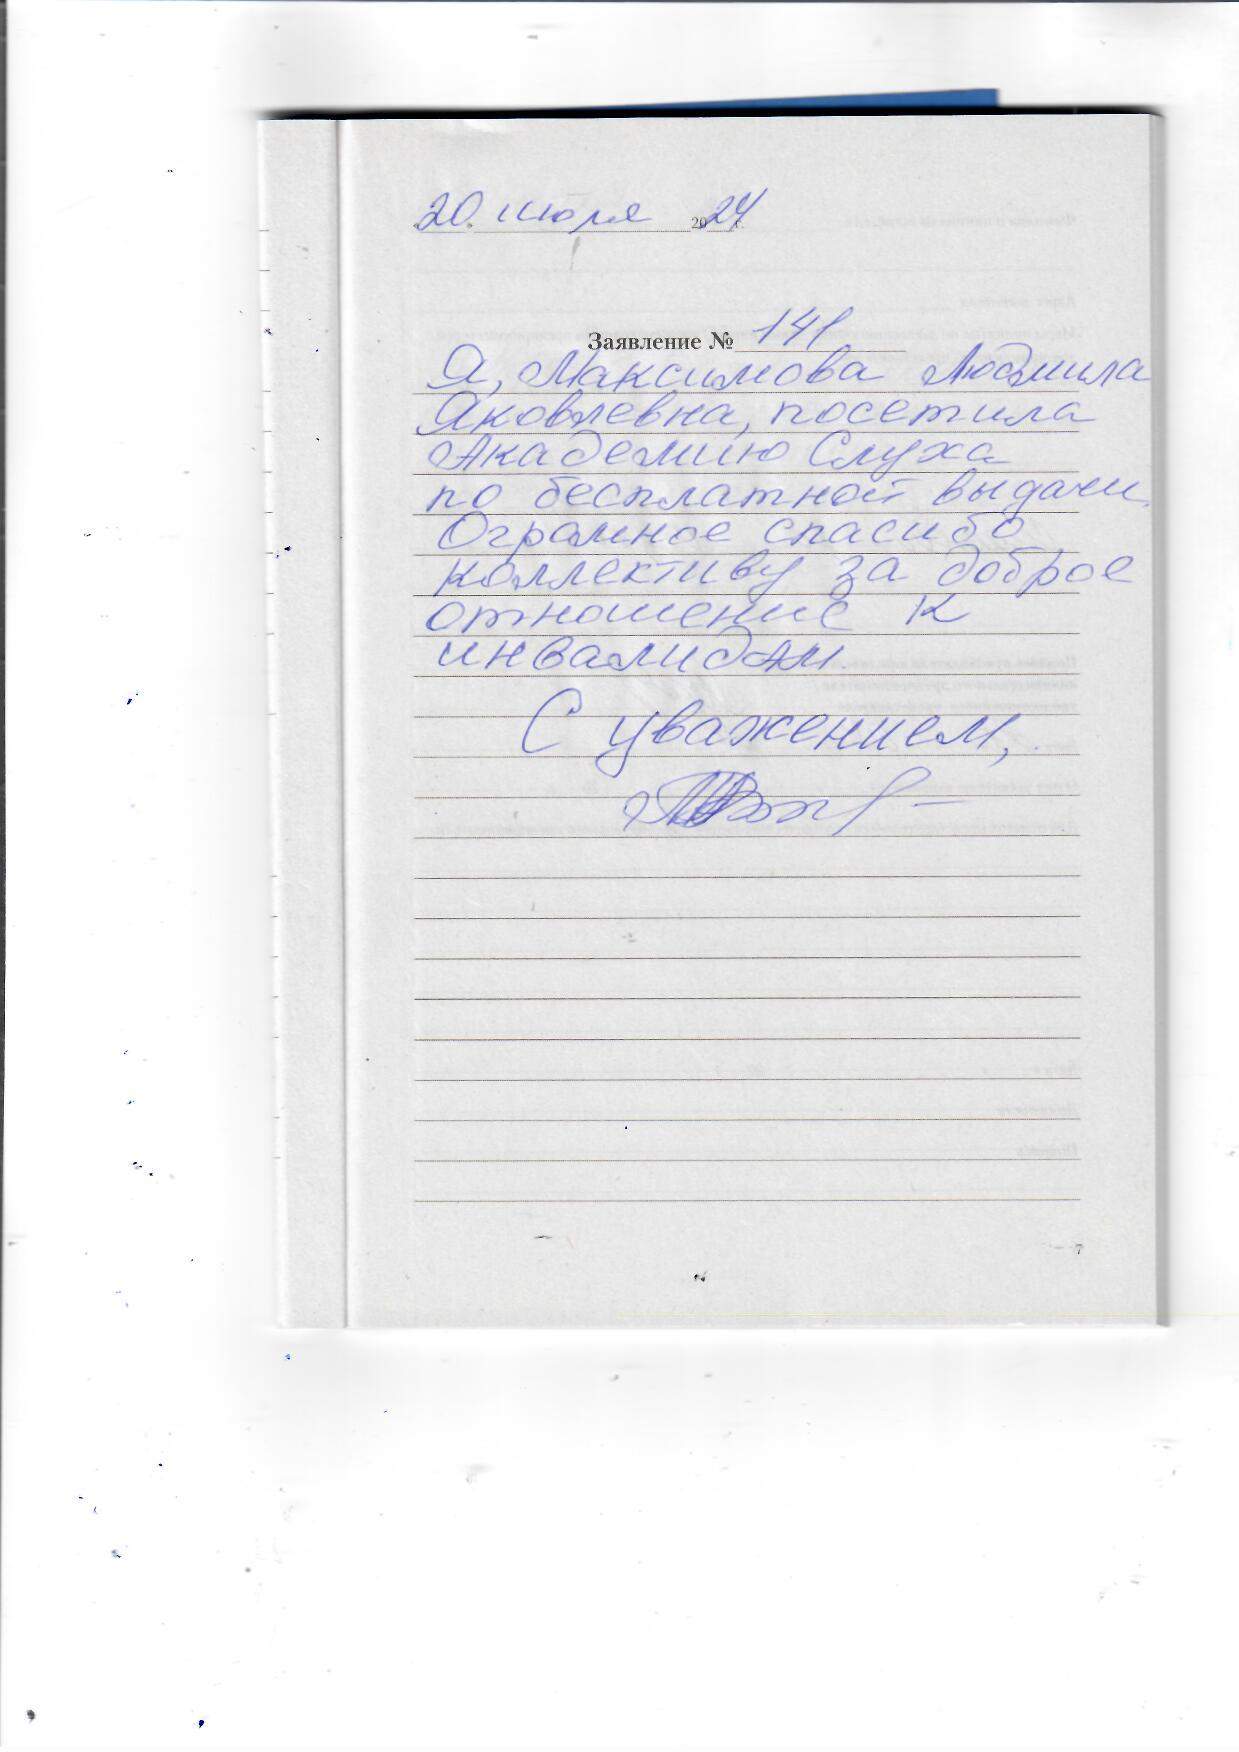 20 июля 2024 г.
Заявление № 141
Я, Максимова Людмила
Яковлевна, посетила
Академию Слуха
по бесплатной выдачи.
Огромное спасибо
коллективу за доброе
отношение к
инвалидам.
С уважением,
7